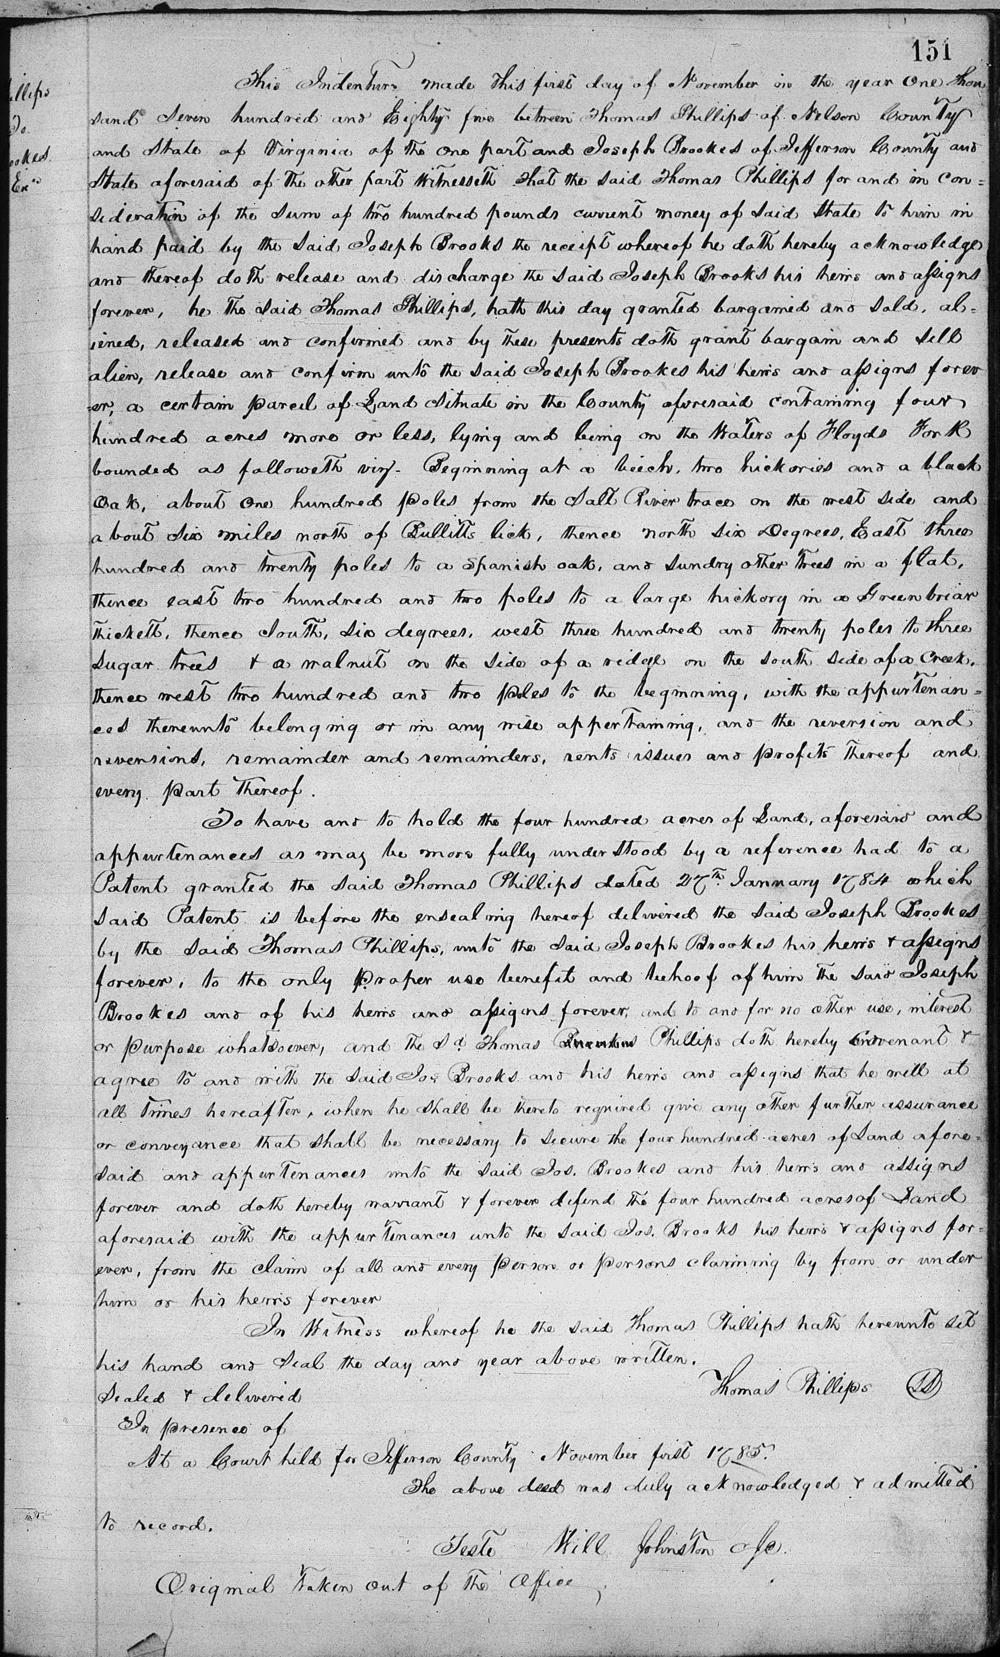 151
This Indenture made this first day of November in the year One thou
sand Seven hundred and Eighty five between Thomas Phillips of Nelson County
and State of Virginia of the one part and Joseph Brookes of Jefferson County and
State aforesaid of the other part Witnesseth That the said Thomas Phillips for and in con=
sideration of the Sum of two hundred pounds current money of said State to him in
hand paid by the said Joseph Brooks the receipt whereof he doth hereby acknowledge
and thereof doth release and discharge the said Joseph Brooks his heirs and assigns
forever, he the said Thomas Phillips, hath this day granted bargained and sold, al=
iened, released and confirmed and by these presents doth grant bargain and sell
alien, release and confirm unto the said Joseph Brookes his heirs and assigns forev
er, a certain parcel of Land Situate in the County aforesaid containing four
hundred acres more or less, lying and being on the Waters of Floyds Fork
bounded as followeth viz- Beginning at a beech, two hickories and a black
Oak, about one hundred poles from the Salt River trace on the west side and
about Six miles north of Bullitts lick, thence north six Degrees, East three
hundred and twenty poles to a Spanish oak, and sundry other trees in a flat,
thence east two hundred and two poles to a large hickory in a Greenbriar
thickett, thence South, six degrees, west three hundred and twenty poles to three
sugar trees & a walnut on the side of a ridge on the south side of a Creek,
thence west two hundred and two poles to the beginning, with the appurtenan=
ces thereunto belonging or in any wise appertaining, and the reversion and
reversions, remainder and remainders, rents issues and profits thereof and
every part thereof.
To have and to hold the four hundred acres of Land, aforesaid and
appurtenances as may be more fully understood by a reference had to a
Patent granted the said Thomas Phillips dated 27th January 1784 which
said Patent is before the ensealing hereof delivered the said Joseph Brookes
by the said Thomas Phillips, unto the said Joseph Brookes his heirs & assigns
forever, to the only proper use benefit and behoof of him the said Joseph
Brookes and of his heirs and assigns forever, and to and for no other use, interest
or purpose whatsoever, and the Sd Thomas Phillips doth hereby Covenant &
agree to and with the said Jos Brooks and his heirs and assigns that he will at
all times hereafter, when he shall be thereto required give any other further assurance
or conveyance that shall be necessary to secure the four hundred acres of Land afore=
said and appurtenances unto the said Jos. Brookes and his heirs and assigns
forever and doth hereby warrant & forever defend the four hundred acres of Land
aforesaid with the appurtenances unto the said Jos. Brooks his heirs & assigns for=
ever, from the claim of all and every person or persons claiming by from or under
him or his heirs forever
In Witness whereof he the said Thomas Phillips hath hereunto set
his hand and Seal the day and year above written.
Thomas Phillips
Sealed & delivered
In presence of
At a Court held for Jefferson County November first 1785.
The above deed was duly acknowledged & admitted
to record.
Teste Will Johnston
Original taken out of the Office